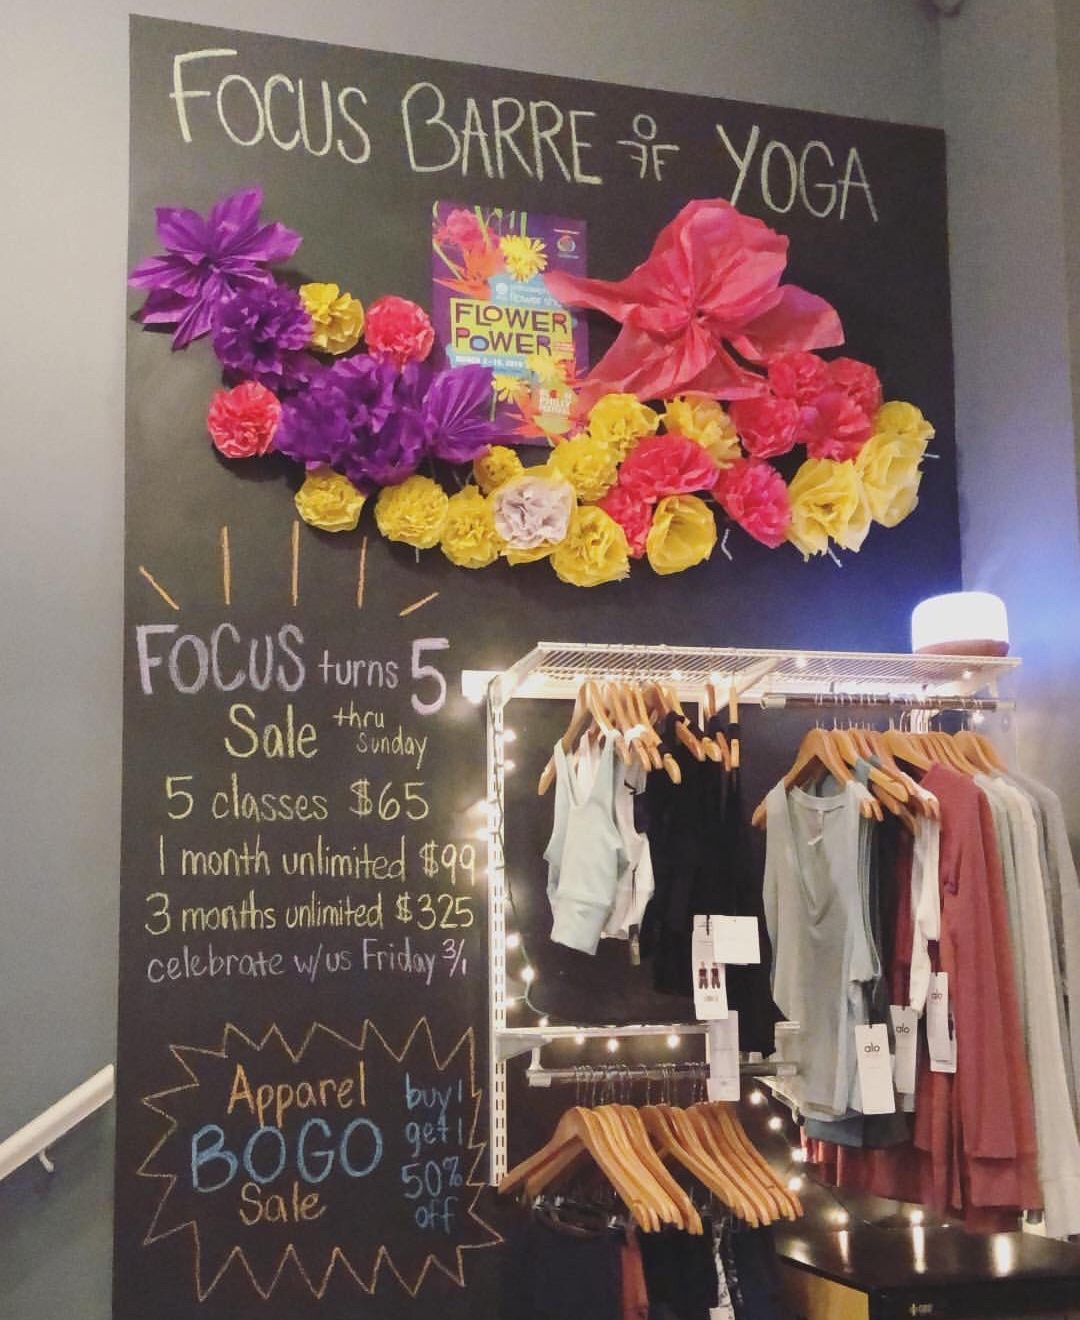 FOCUS BARRE YOGA
flower show
FLOWER
POWER
FOCUS turns 5
Sale thru
sunday
5 classes $65
1 month unlimited $99
3 months unlimited $325
celebrate w/us Friday 3/1
Apparel
BOGO
Sale
buy 1
get 1
50%
off
alo
alo
alo